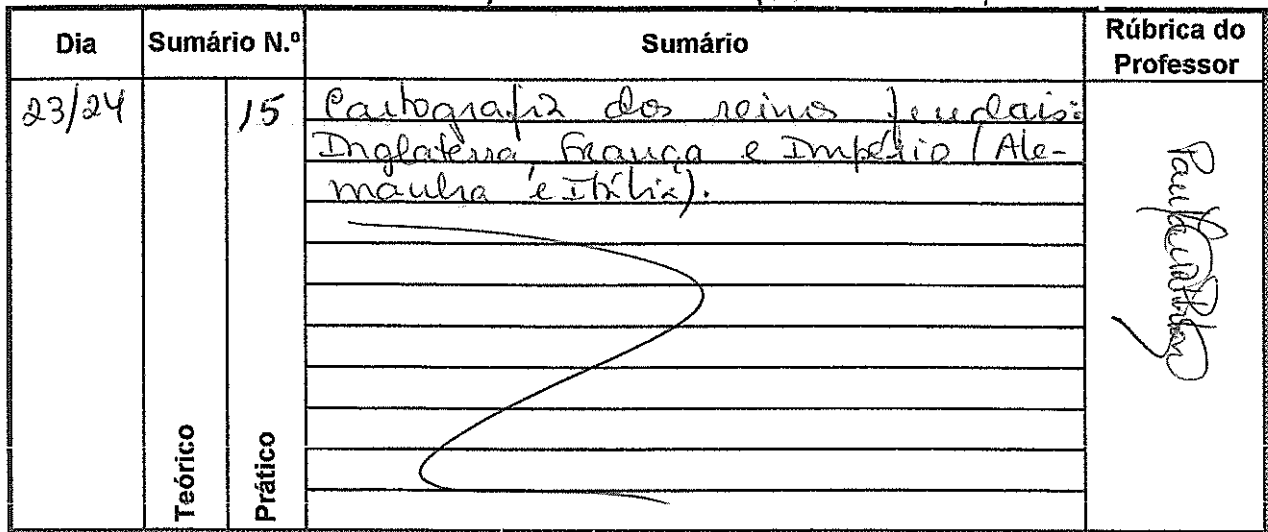 Dia Sumário N.º Sumário Rúbrica do Professor
23/24 15 Cartografia dos reinos feudais:
Inglaterra, França e Império (Ale-
manha e Itália).
Teórico
Prático